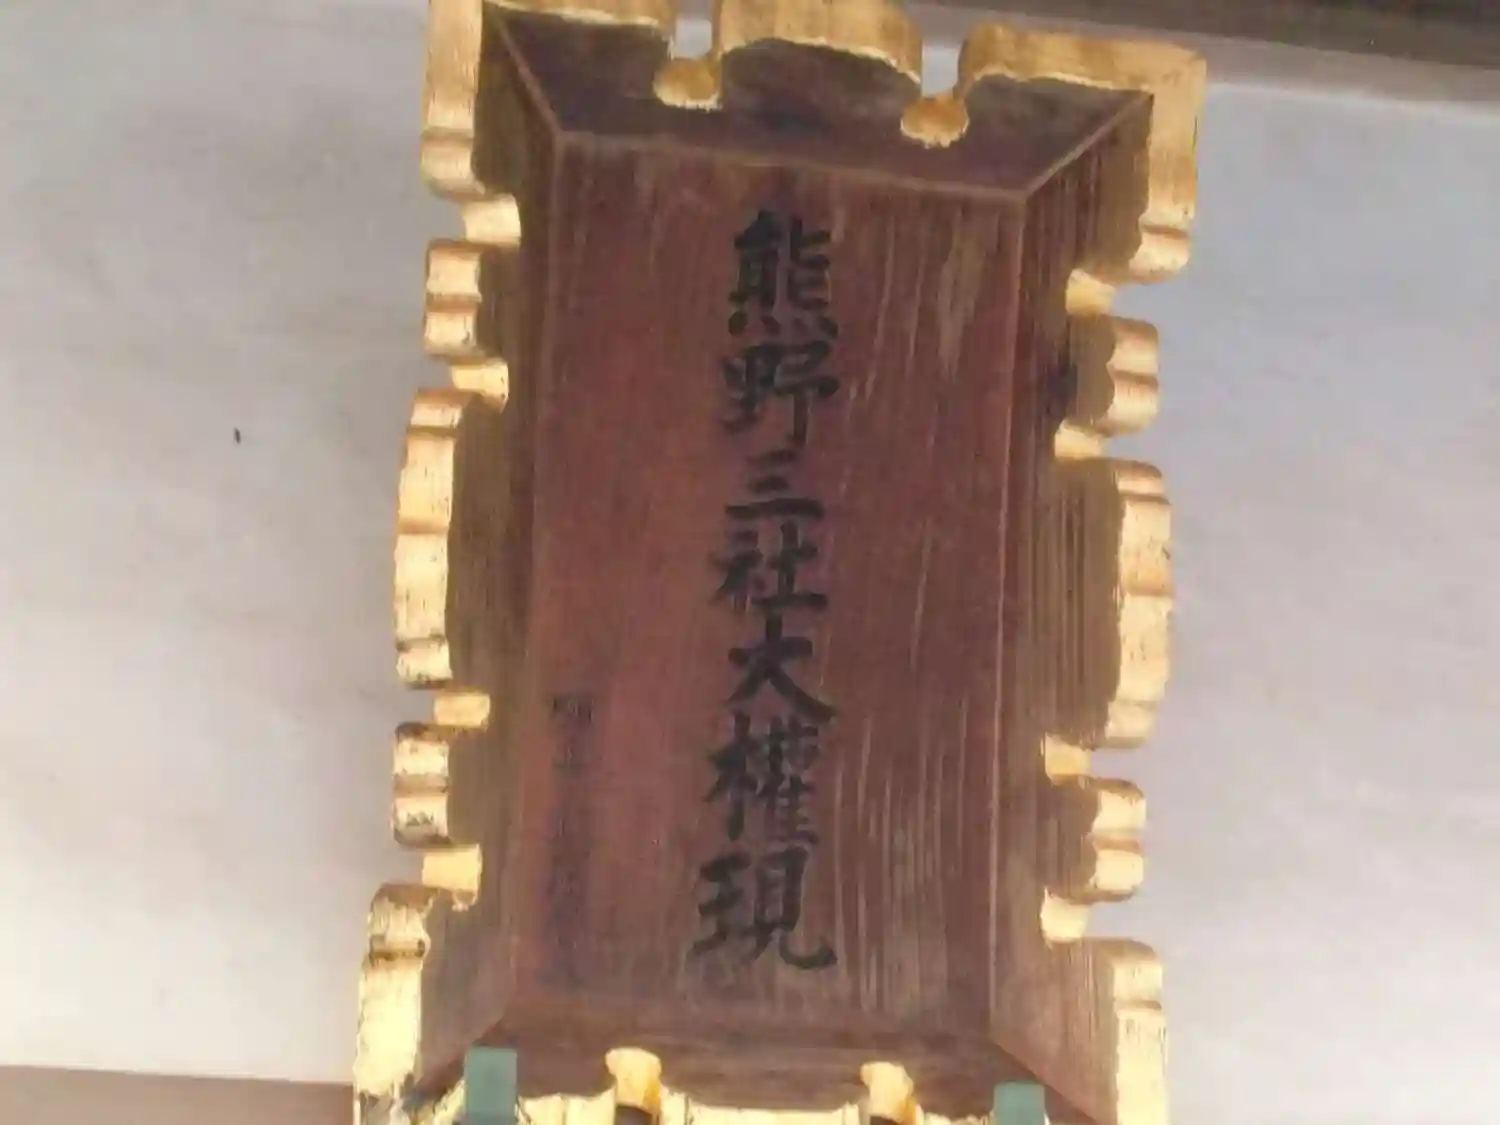 熊野三社大權現